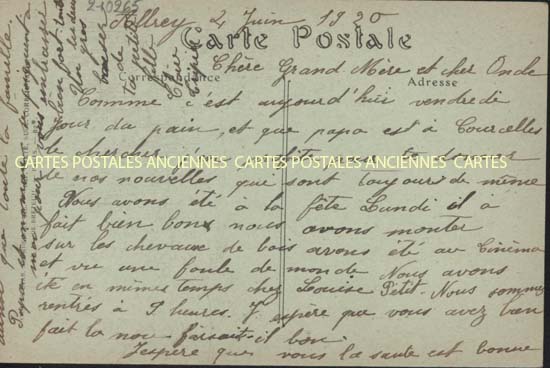 2-10965
Albrey 2 Juin 1920
Carte Postale
Correspondance
Adresse
Chère Grand Mère et cher Oncle
Comme c'est aujourd'hui vendredi
jour du pain, et que papa est à Courcelles
le chercher
CARTES POSTALES ANCIENNES CARTES POSTALES ANCIENNES CARTES
de nos nouvelles que sont toujours de même
Nous avons été à la fête Lundi il a
fait bien bon nous avons monter
sur les chevaux de bois avons été au Cinéma
et vu une foule de monde Nous avons
été en mêmes temps chez Louise Petit. Nous sommes
rentrés à 9 heures. J'espère que vous avez bien
fait la noce faisait-il bon
J'espère que vous la santé est bonne
que toute la famille.
Papa et maman
bien fort
Un gros
baiser
de
ta petite